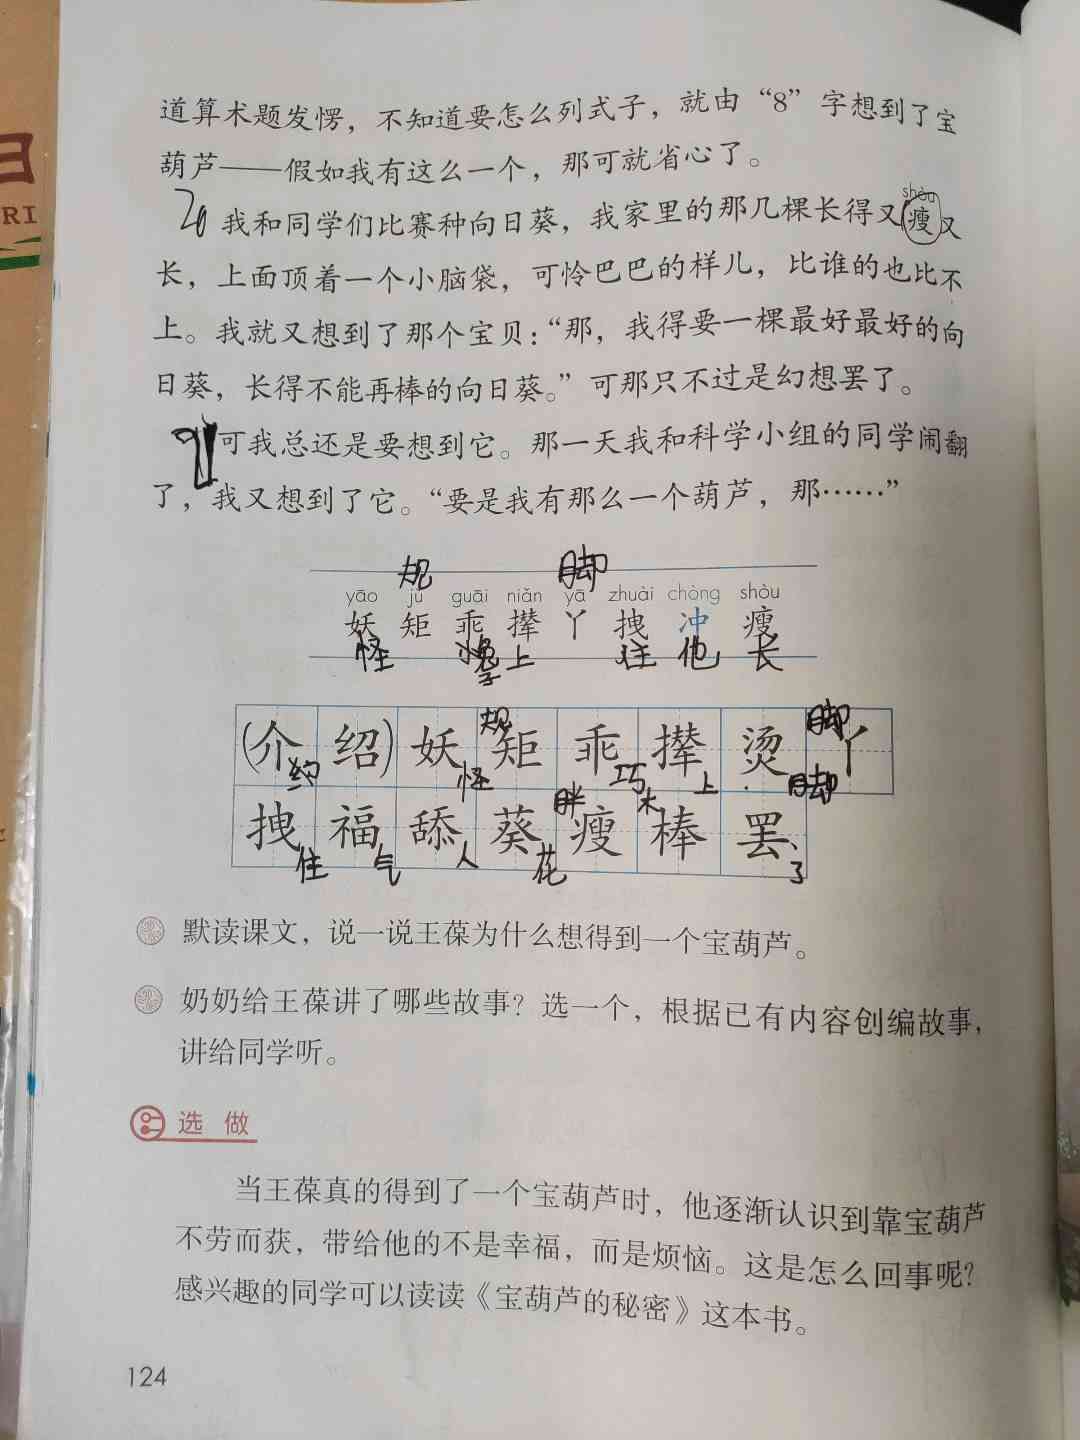 道算术题发愣，不知道要怎么列式子，就由“8”字想到了宝
葫芦——假如我有这么一个，那可就省心了。
shòu
20 我和同学们比赛种向日葵，我家里的那几棵长得又瘦又
长，上面顶着一个小脑袋，可怜巴巴的样儿，比谁的也比不
上。我就又想到了那个宝贝：“那，我得要一棵最好最好的向
日葵，长得不能再棒的向日葵。”可那只不过是幻想罢了。
可我总还是要想到它。那一天我和科学小组的同学闹翻
了，我又想到了它。“要是我有那么一个葫芦，那……”
规 脚
yāo jǔ guāi niǎn yā zhuài chòng shòu
妖 矩 乖 撵 丫 拽 冲 瘦
怪 上 住 他 长
规 脚
(介 绍) 妖 矩 乖 撵 烫 丫
约 怪 胖 巧 木 上 脚
拽 福 舔 葵 瘦 棒 罢
住 气 人 花 了
默读课文，说一说王葆为什么想得到一个宝葫芦。
奶奶给王葆讲了哪些故事？选一个，根据已有内容创编故事，
讲给同学听。
选 做
当王葆真的得到了一个宝葫芦时，他逐渐认识到靠宝葫芦
不劳而获，带给他的不是幸福，而是烦恼。这是怎么回事呢？
感兴趣的同学可以读读《宝葫芦的秘密》这本书。
124
RI